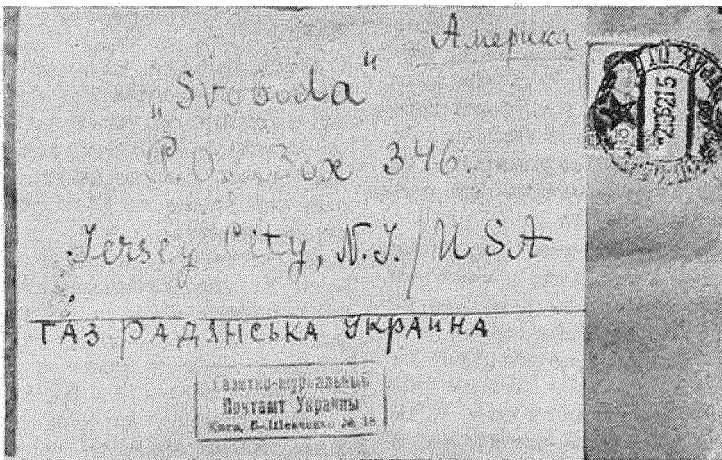 Америка
„Svoboda“
P.O. Box 346.
Jersey City, N.J./USA
ГАЗ РАДЯНСЬКА УКРАИНА
Газетно-журнальный
Почтамт Украины
Киев, б.-Шевченко